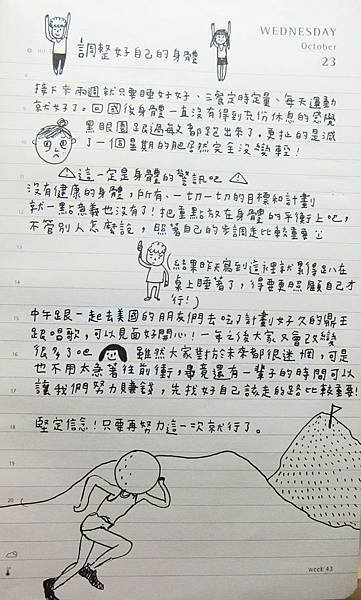 WEDNESDAY
October
23
調整好自己的身體
接下來兩週就只要睡好好、三餐定時定量、每天運動
就好了。回國後身體一直沒有得到充份休息的感覺
黑眼圈跟過敏都跑出來了。更扯的是減
了一個星期的肥居然完全沒變輕！
這一定是身體的警訊吧
沒有健康的身體，所有、一切一切的目標和計劃
就一點意義也沒有了！把重點放在身體的平衡上吧，
不管別人怎麼說，照著自己的步調走比較重要
（結果昨天寫到這裡就累得趴在
桌上睡著了，得要更照顧自己才
行！）
中午跟一起去美國的朋友們去吃了計劃好久的鼎王
跟唱歌，可以見面好開心！一年之後大家又會改變
很多了吧 雖然大家對於未來都很迷惘，可是
也不用太急著往前衝，畢竟還有一輩子的時間可以
讓我們努力賺錢，先找好自己該走的路比較重要！
堅定信念！只要再努力這一次就行了。
11
12
13
14
15
16
17
18
19
20
week 43